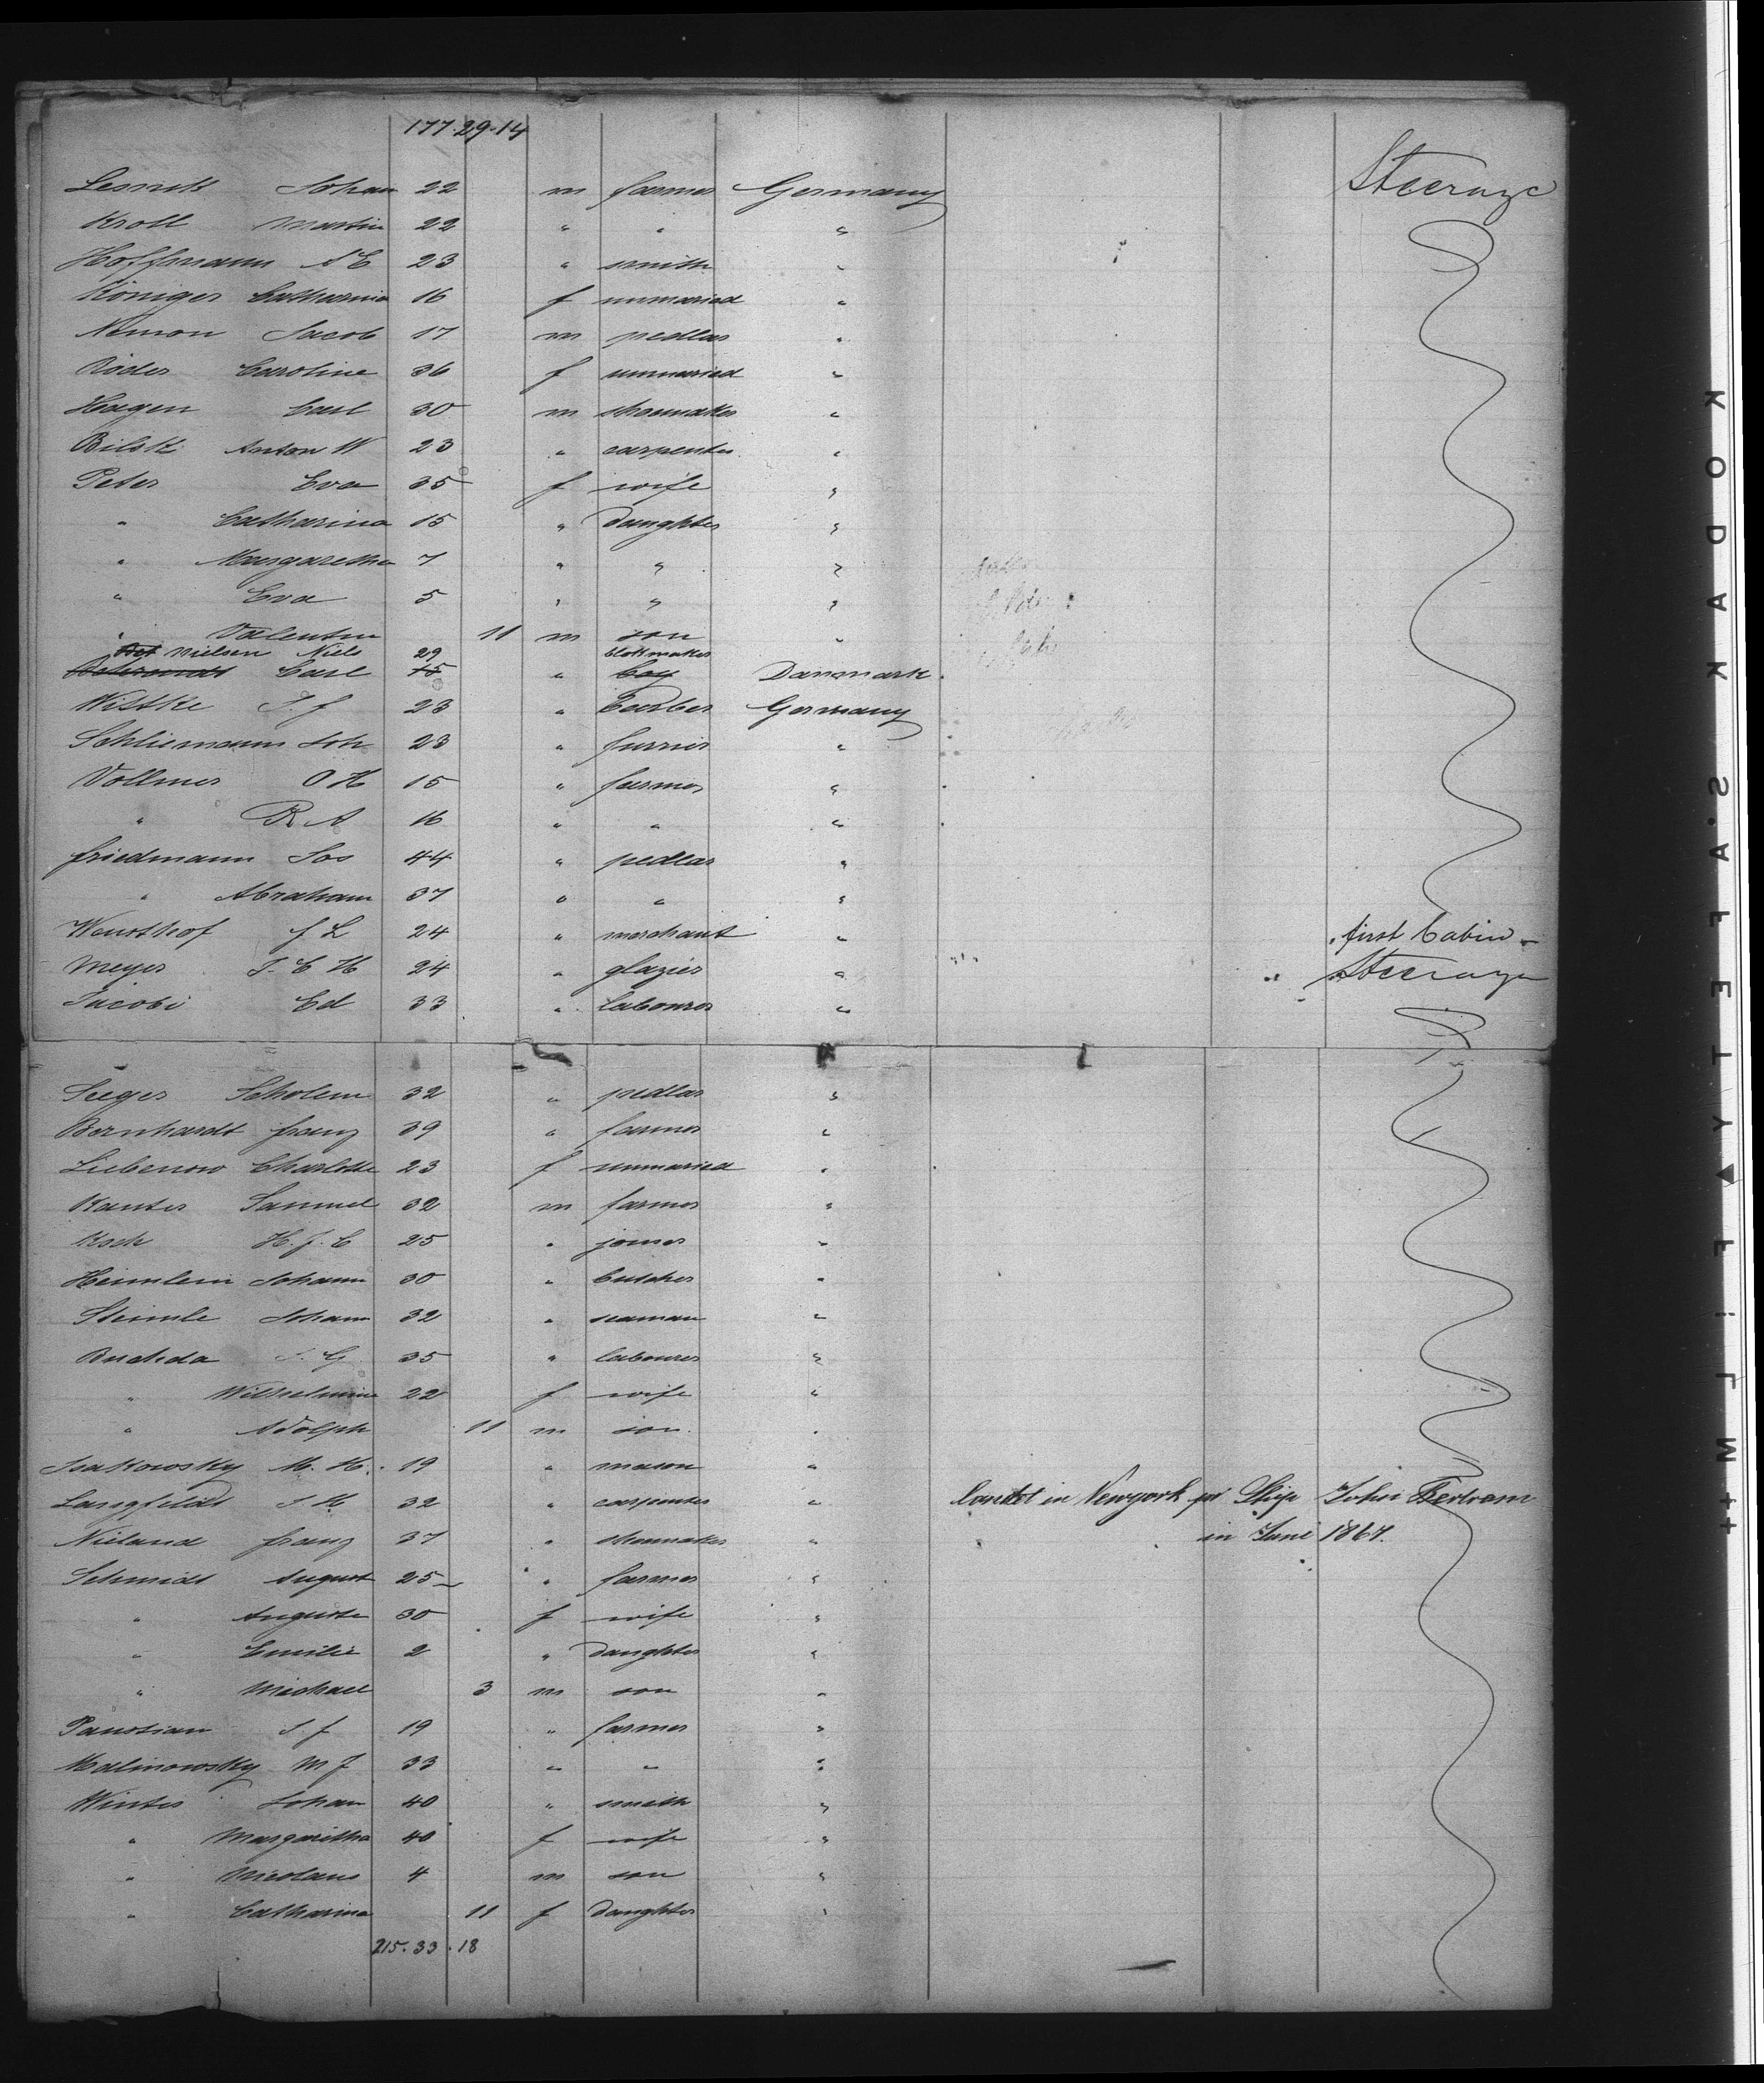 177. 29. 14
Lessnik Johan 22 m farmer Germany Steerage
Kroll Martin 22 " " "
Hoffmann A E 23 " smith "
Königer Catharina 16 f unmaried "
Nemon Jacob 17 m pedlar "
Röder Caroline 36 f unmaried "
Hagen Carl 30 m shoemaker "
Bilski Anton W 23 " carpenter "
Peter Eva 35 f wife "
" Catharina 15 " daughter "
" Margaretha 7 " " "
" Eva 5 " " "
" Valentin 11 m son "
Nielsen Niels 29 blokmaker
Carl 15 " boy Danmark
Wittke J. f 23 " barber Germany
Schliemann Joh 23 " furrier "
Vollmer O H 15 " farmer "
" R A 16 " " "
friedmann Jos 44 " pedlar "
" Abraham 37 " " "
Wusthof f L 24 " merchant " first Cabin
Meyer J. C H 24 " glazier " Steerage
Jacobi Ed 33 " labourer "
Seeger Scholem 32 " pedlar "
Bernhardt franz 39 " farmer "
Liebenow Charlotte 23 f unmaried "
Kanter Samuel 32 m farmer "
Koch H. f. C 25 " joiner "
Heimlein Johann 30 " butcher "
Steimle Johann 32 " seaman "
Bucheda J. G 35 " labourer "
" Wilhelmine 22 f wife "
" Adolph 11 m son "
Isakowsky M. H. 19 " mason "
Langfeldt J H 32 " carpenter " landet in Newyork pr Ship John Bertram
in Juni 1867.
Nieland franz 37 " shoemaker "
Schmidt August 25 " farmer "
" Auguste 30 f wife "
" Emilie 2 " daughter "
" Michael 3 m son "
Panstian J. f 19 " farmer "
Malinowsky M J 33 " " "
Winter Johan 40 " smith "
" Margaritha 40 f wife "
" Nicolaus 4 m son "
" Catharina 11 f daughter "
215. 33. 18
KODAK S.A.FETY FILM